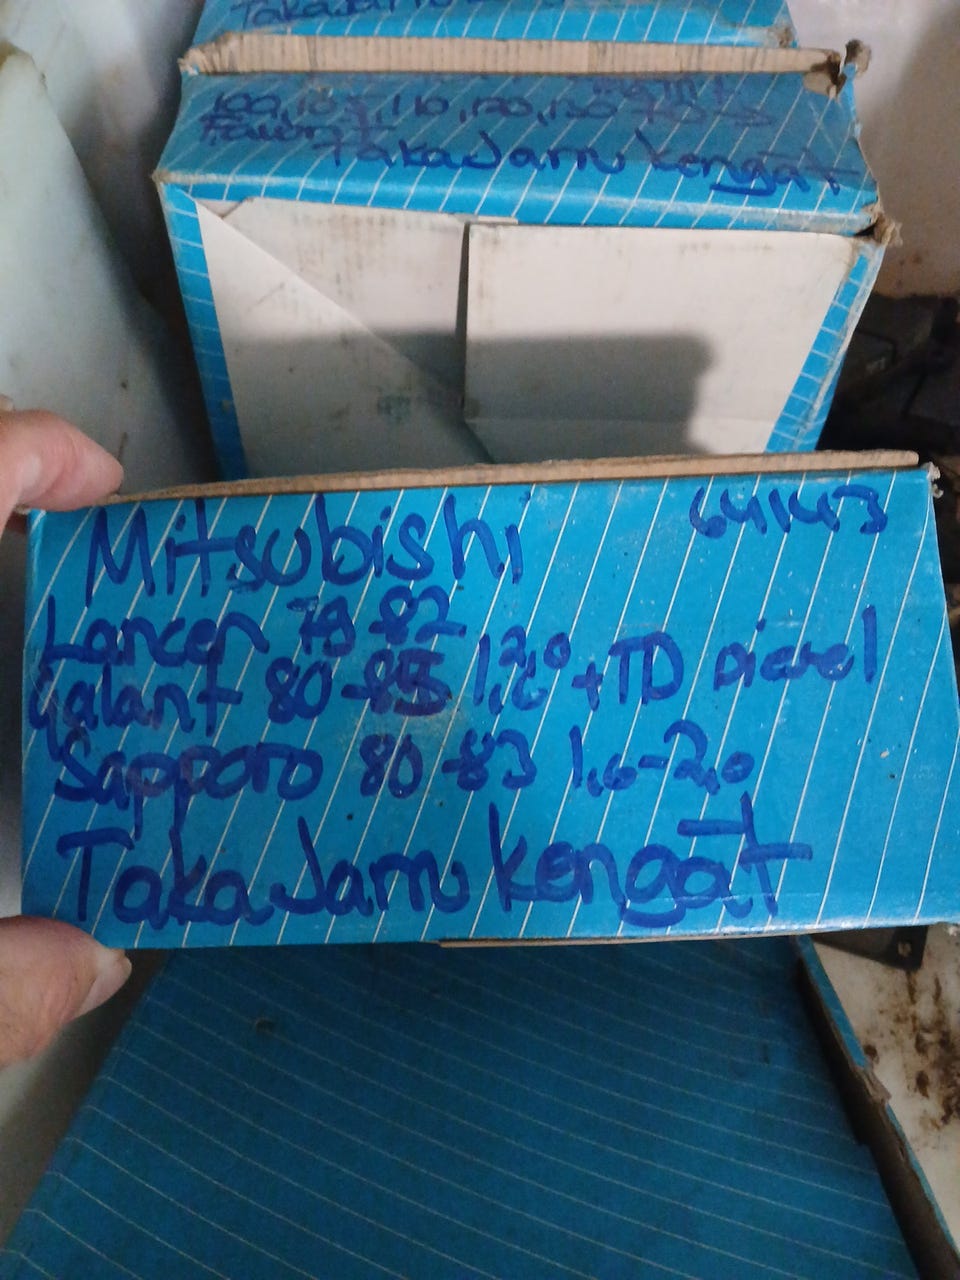 TakaJarru
100, 105, 110, 120, 130
Favorit
TakaJarru kengät
Mitsubishi 64143
Lancer 79-82
Galant 80-85 1,6 2,0 + TD Diesel
Sapporo 80-83 1,6-2,0
TakaJarru kengät